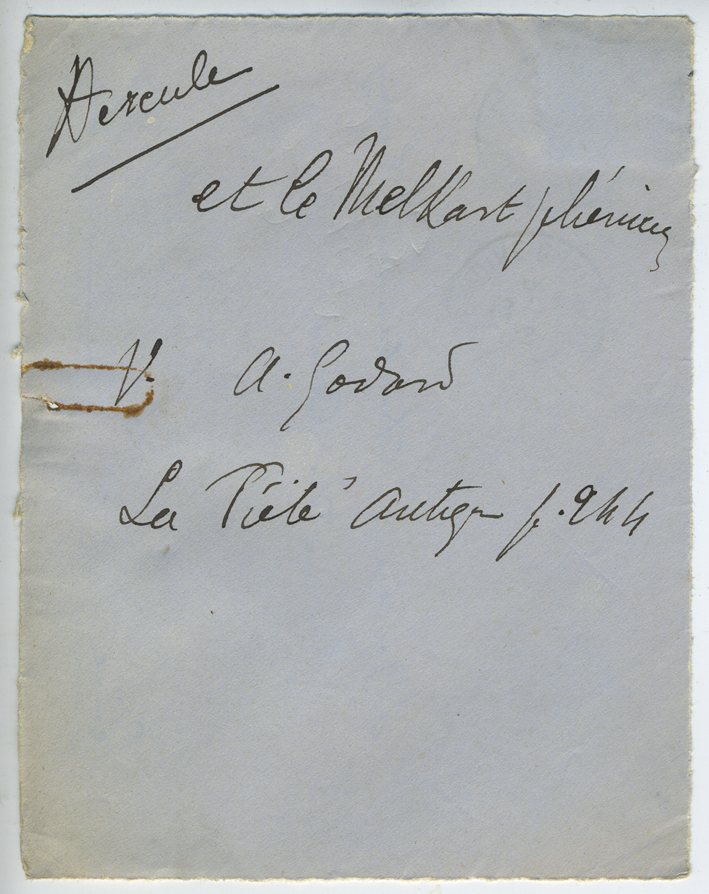 Hercule
et le MelKart phénicien
V. A. Godard
La Piété Antique p. 244